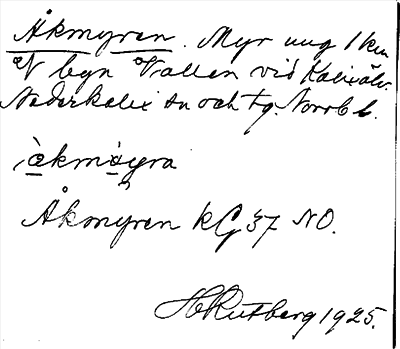 Åkmyren. Myr ung 1 km
V byn Vallen vid Kalixälv.
Nederkalix sn och tg. Norrb l.
åkmyra
Åkmyren kG 37 NO.
H Rutberg 1925.